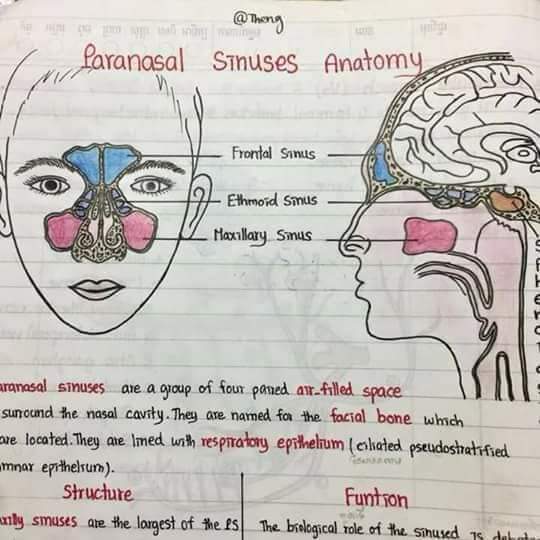 @Theng
Paranasal Sinuses Anatomy
Frontal Sinus
Ethmoid Sinus
Maxillary Sinus
aranasal sinuses are a group of four paired air-filled space
surround the nasal cavity. They are named for the facial bone which
are located. They are lined with respiratory epithelium (ciliated pseudostratified
umnar epithelium).
Structure
Funtion
axilly sinuses are the largest of the PS
The biological role of the sinused is debate